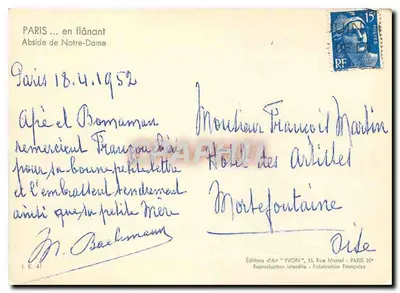 PARIS... en flânant
Abside de Notre-Dame
15F
POSTES
RF
Paris 18.4.1952
Apé et Bomaman
remercient Françou
pour sa bonne petite lettre
et l'embrassent tendrement
ainsi que sa petite Mère
M. Bachmann
Monsieur François Martin
Hôtel des Artistes
Mortefontaine
Oise
I. K. 41
Éditions d'Art "YVON", 15, Rue Martel - PARIS Xe
Reproduction interdite - Fabrication Française